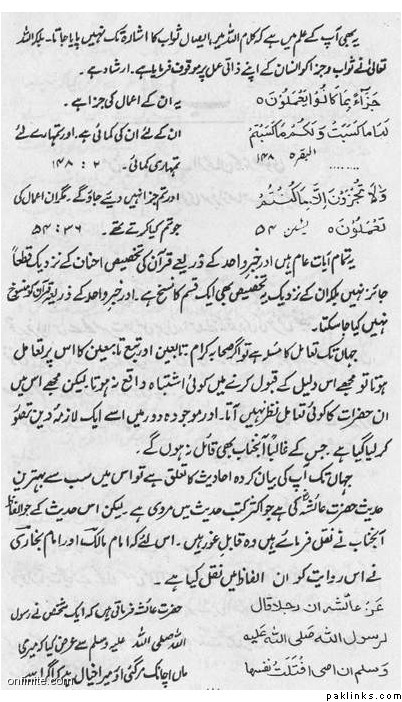 یہ بھی آپ کے علم میں ہے کہ کلام اللہ میں ایصال ثواب کا اشارہ تک نہیں پایا جاتا۔ بلکہ اللہ
تعالیٰ نے ثواب و جزا کو انسان کے اپنے ذاتی عمل پر موقوف فرمایا ہے۔ ارشاد ہے۔
جَزَآءً بِمَا كَانُوْا يَعْمَلُوْنَ ○ یہ ان کے اعمال کی جزا ہے۔
لَهَا مَا كَسَبَتْ وَلَكُمْ مَّا كَسَبْتُمْ ان کے لئے ان کی کمائی ہے۔ اور تمہارے لئے
البقرہ ۱۴۸ تمہاری کمائی۔ ۲ : ۱۴۸
........
وَلَا تُجْزَوْنَ اِلَّا مَا كُنْتُمْ اور تم جزا نہیں دیئے جاؤ گے۔ مگر ان اعمال کی
تَعْمَلُوْنَ ○ یٰسٓ ۵۴ جو تم کیا کرتے تھے۔ ۳۶ : ۵۴
یہ تمام آیات عام ہیں اور خبر واحد کے ذریعے قرآن کی تخصیص احناف کے نزدیک قطعاً
جائز نہیں بلکہ ان کے نزدیک یہ تخصیص بھی ایک قسم کا نسخ ہے۔ اور خبر واحد کے ذریعہ قرآن کو منسوخ
نہیں کیا جا سکتا۔
جہاں تک تعامل کا مسئلہ ہے تو اگر صحابہ کرام تابعین اور تبع تابعین کا اس پر تعامل
ہوتا تو مجھے اس دلیل کے قبول کرنے میں کوئی اشتباہ واقع نہ ہوتا لیکن مجھے اس میں
ان حضرات کا کوئی تعامل نظر نہیں آتا۔ اور موجودہ دور میں اسے ایک لازمۂ دین تصور
کر لیا گیا ہے۔ جس کے غالباً آنجناب بھی قائل نہ ہوں گے۔
جہاں تک آپ کی بیان کردہ احادیث کا تعلق ہے تو اس میں سب سے بہترین
حدیث حضرت عائشہؓ کی ہے جو اکثر کتب حدیث میں مروی ہے۔ لیکن اس حدیث کے جو الفاظ
آنجناب نے نقل فرمائے ہیں وہ قابل غور ہیں۔ اس لئے کہ امام مالکؒ اور امام بخاریؒ
نے اس روایت کو ان الفاظ میں نقل کیا ہے۔
عن عائشہ ان رجلا قال حضرت عائشہ فرماتی ہیں کہ ایک شخص نے رسول
لرسول اللہ صلی اللہ علیہ اللہ صلی اللہ علیہ وسلم سے عرض کیا کہ میری
وسلم ان امی افتلتت نفسہا ماں اچانک مر گئی اور میرا خیال ہے کہ اگر اسے
onlinite.com
paklinks.com